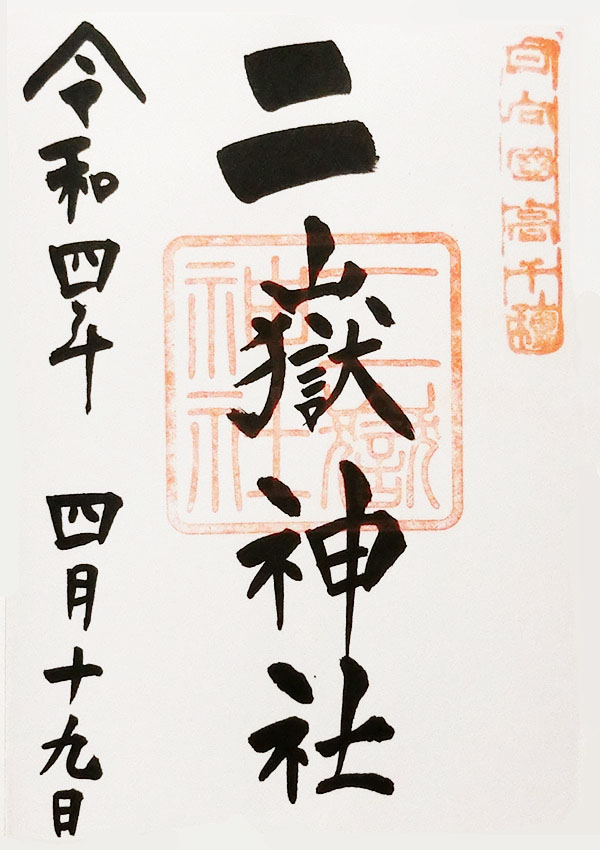 日向国高千穂
二嶽神社
二嶽神社
令和四年 四月十九日